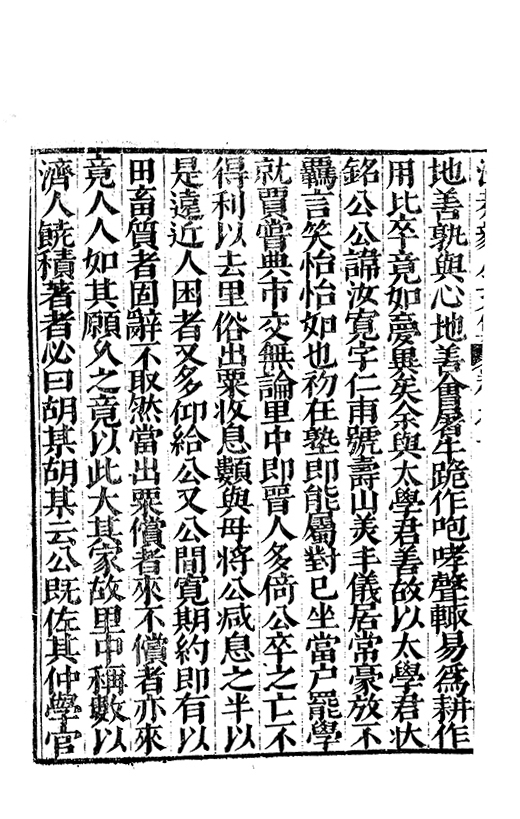 地善孰與心地善會屠牛跪作咆哮聲輙易為耕作
用比卒竟如夢異矣余與太學君善故以太學君狀
銘公公諱汝寬字仁甫號壽山美丰儀居常豪放不
羈言笑怡怡如也初在塾即能屬對已坐當戶罷學
就賈嘗典市交無論里中即晉人多倚公卒之亡不
得利以去里俗出粟收息類與母將公减息之半以
是遠近人困者又多仰給公又公間寬期約即有以
田畜質者固辭不取然當出粟償者來不償者亦來
竟人人如其願久之竟以此大其家故里中稱數以
濟人饒積著者必曰胡某胡某云公既佐其仲學官